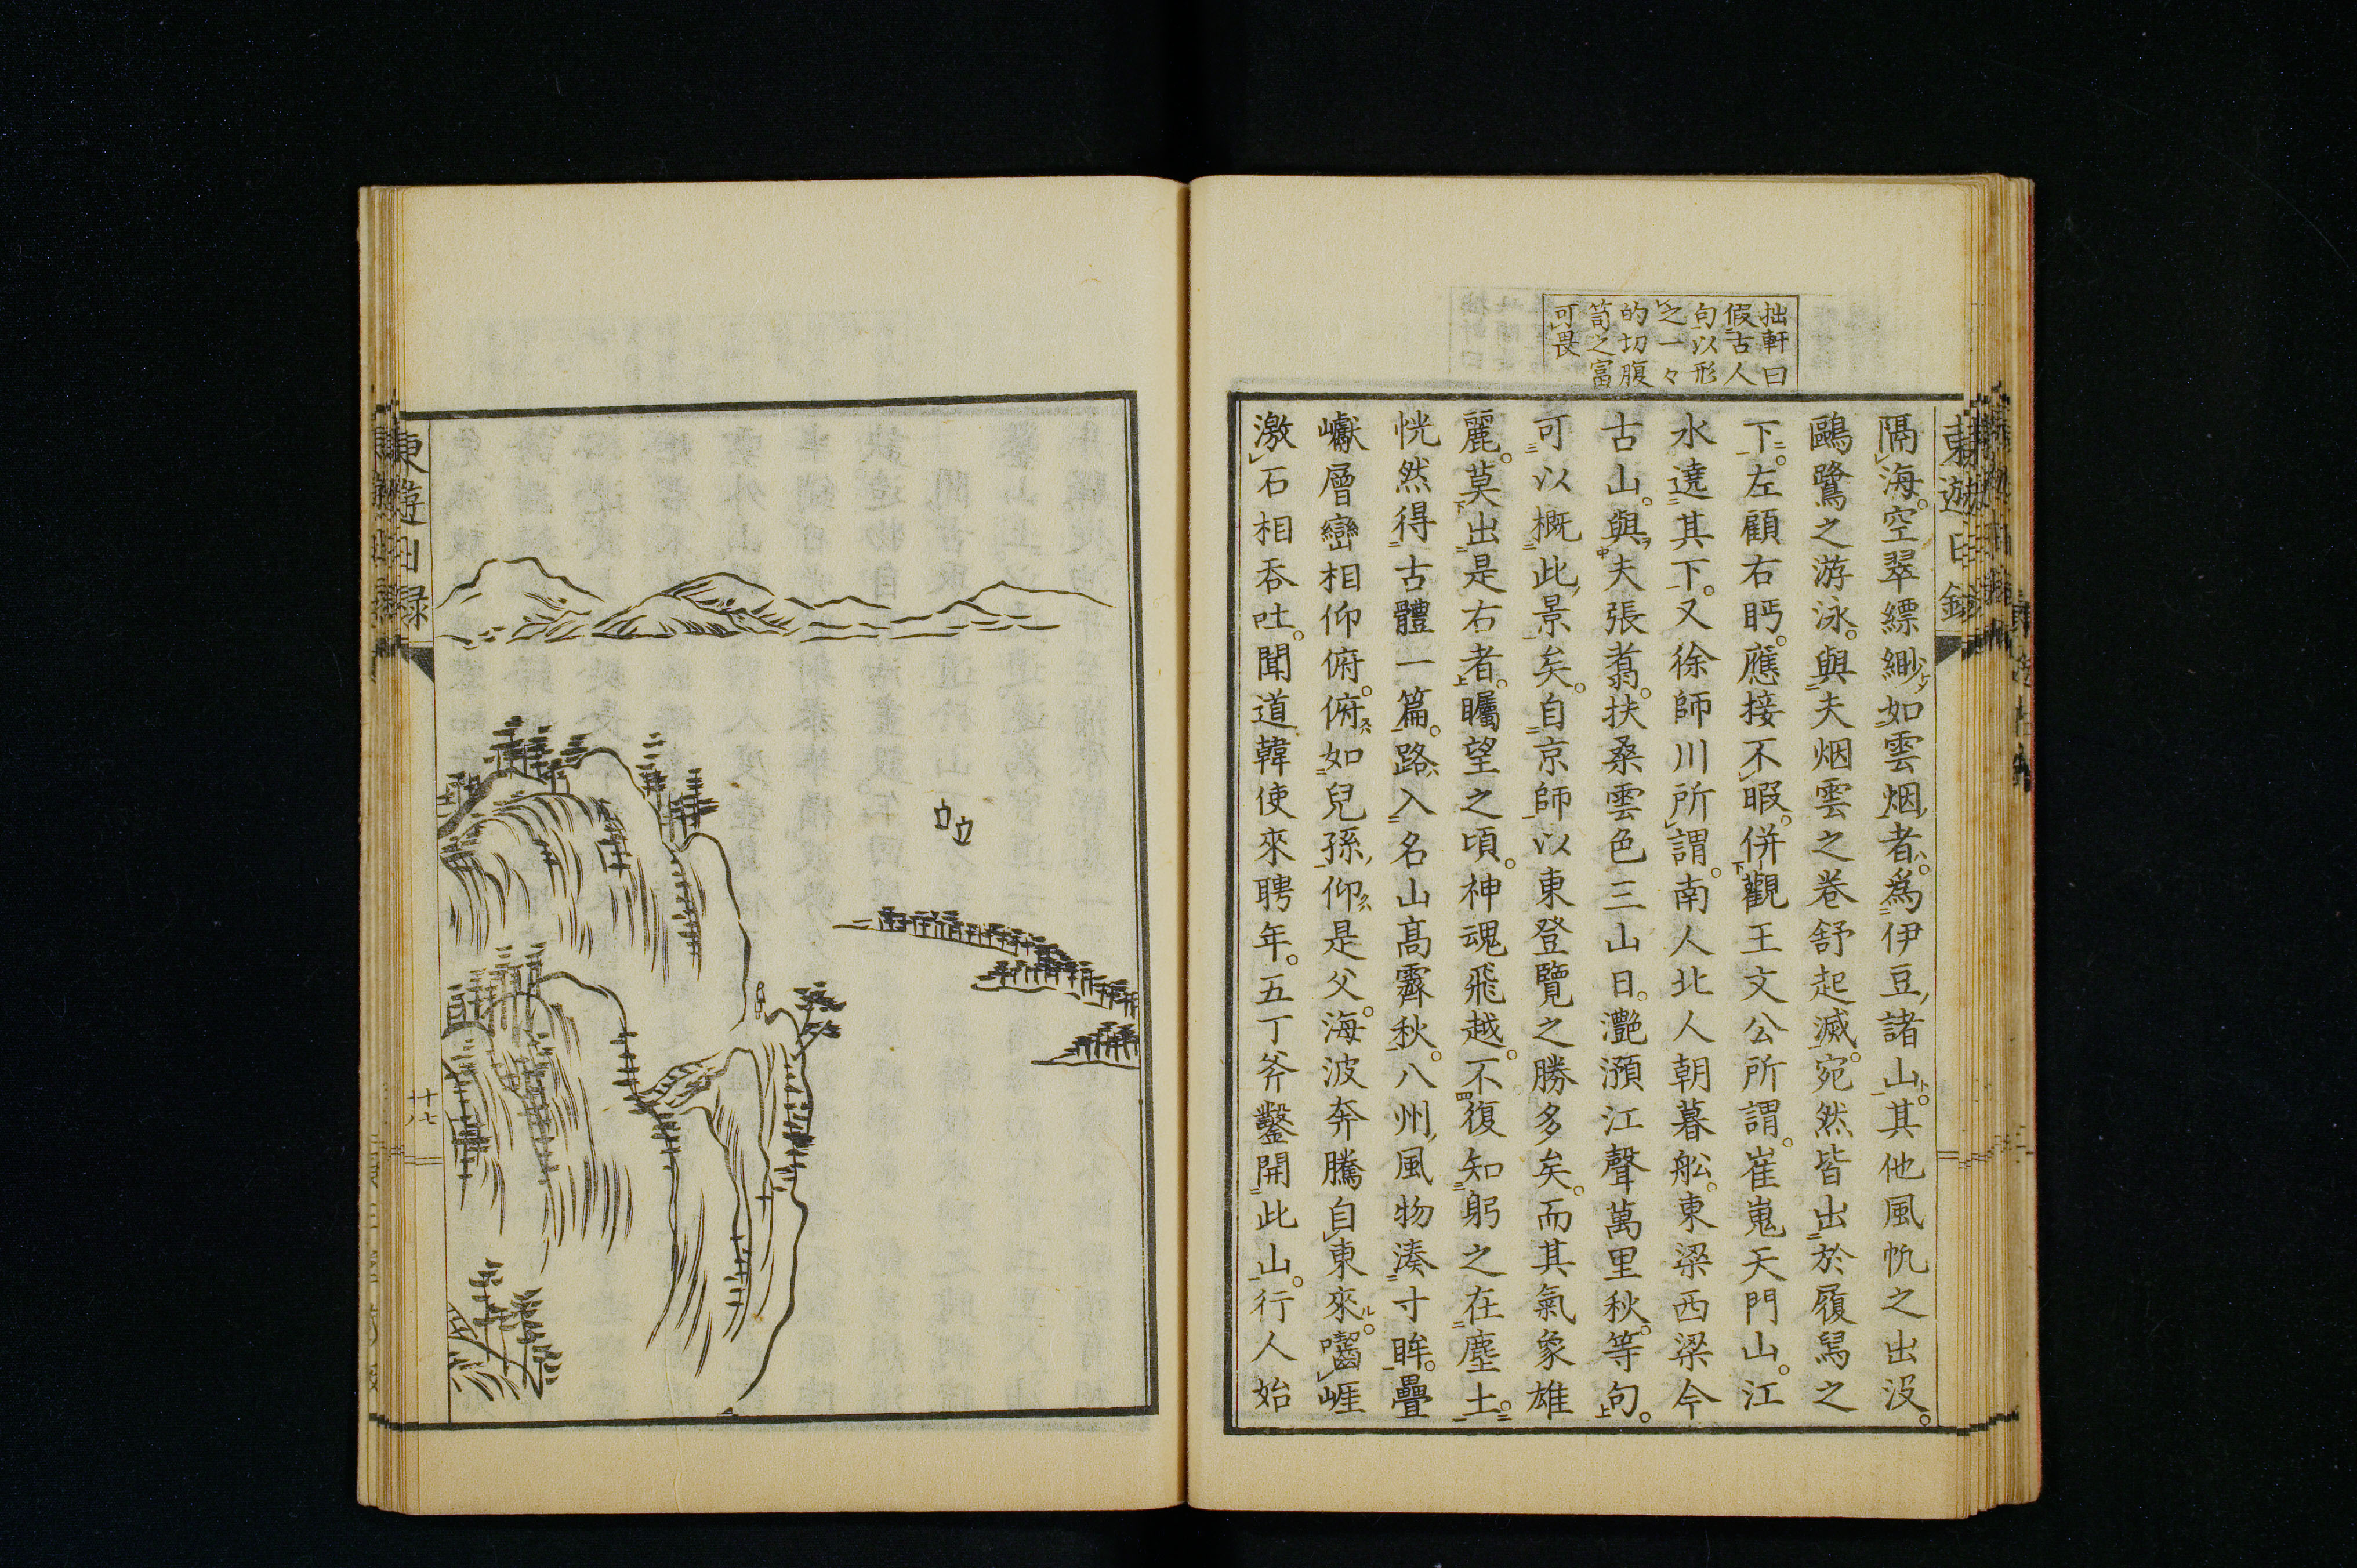 拙軒曰
假古人
句以形
之一々
的切腹
笥之富
可畏
隔海。空翠縹緲如雲烟者。爲伊豆諸山。其他風帆之出沒。
鷗鷺之游泳。與夫烟雲之卷舒起滅。宛然皆出於履舄之
下。左顧右眄。應接不暇。併觀王文公所謂。崔嵬天門山。江
水遶其下。又徐師川所謂。南人北人朝暮舩。東梁西梁今
古山。與夫張翥。扶桑雲色三山日。灔澦江聲萬里秋。等句。
可以概此景矣。自京師以東登覽之勝多矣。而其氣象雄
麗。莫出是右者。矚望之頃。神魂飛越。不復知躬之在塵土。
恍然得古體一篇。路入名山高霽秋。八州風物湊寸眸。疊
巘層巒相仰俯。俯如兒孫仰是父。海波奔騰自東來。囓崕
激石相吞吐。聞道韓使來聘年。五丁斧鑿開此山。行人始
東遊日錄